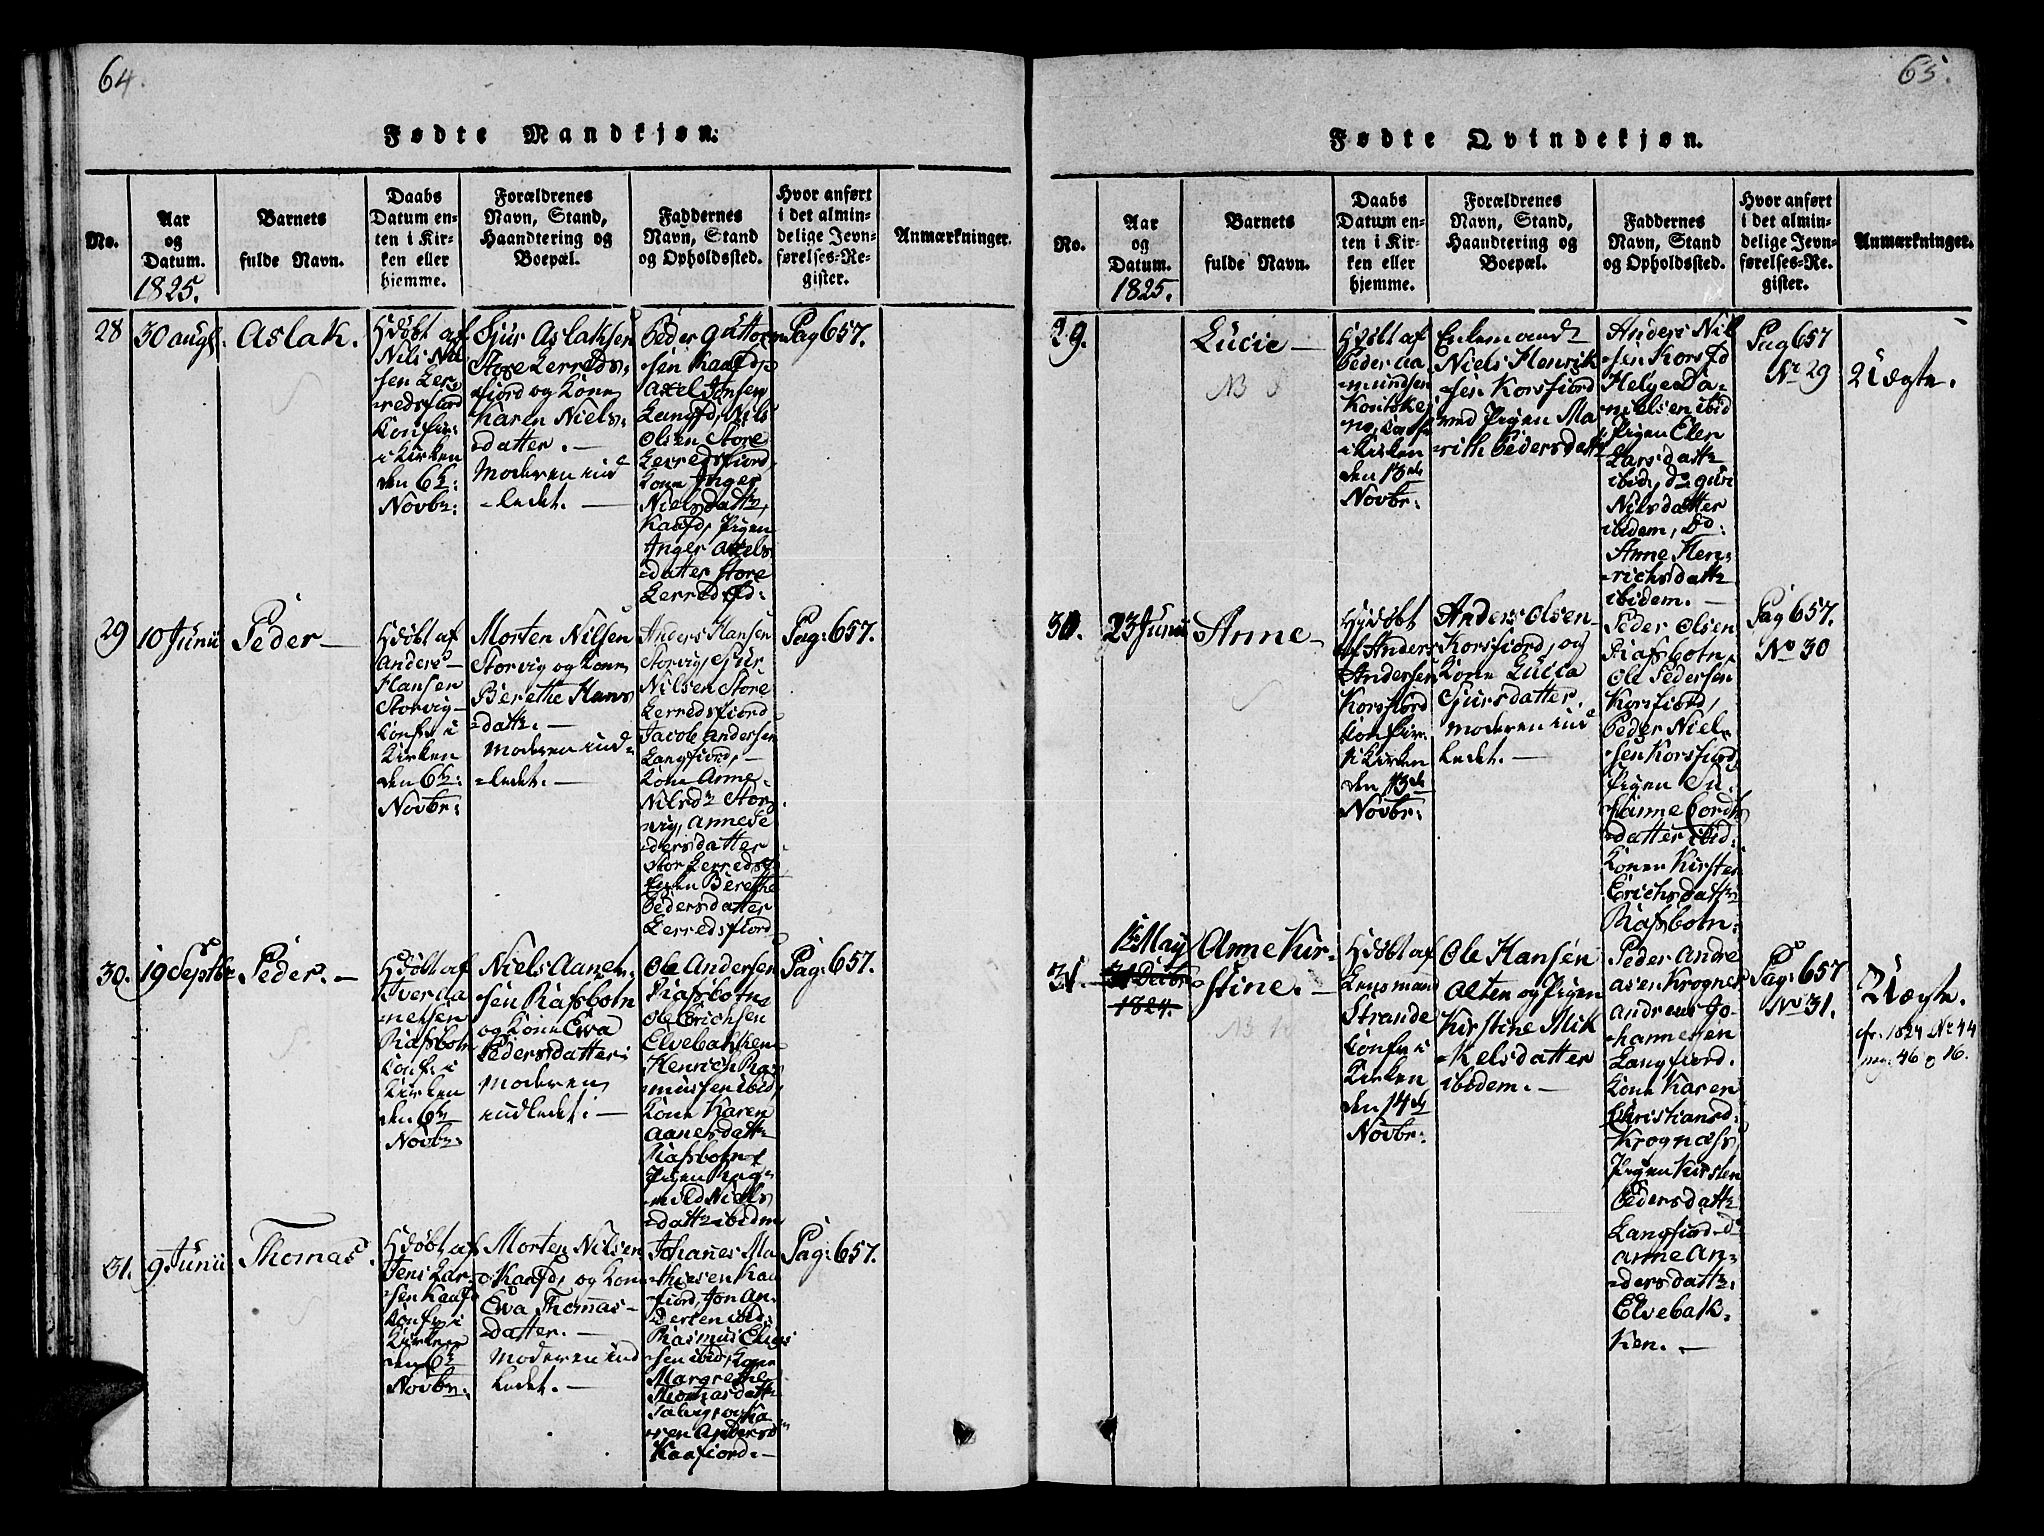 64.
Fødte Mandkjøn.
No.
Aar
og
Datum.
1825.
Barnets
fulde Navn.
Daabs
Datum en-
ten i Kir-
ken eller
hjemme.
Forældrenes
Navn, Stand,
Haandtering og
Boepæl.
Faddernes
Navn, Stand
og Opholdssted.
Hvor anført
i det almin-
delige Jevn-
førelses-Re-
gister.
Anmærkninger.
28
30 augt.
Aslak.
Hdøbt af
Nils Niel
sen Ler
redsfiord
Confir:
i Kirken
den 6te:
Novbr:
Sjur Aslaksen
Store Lerreds:
fiord og Kone
Karen Niels:
datter. —
Moderen ind
ledet. —
Peder Guttorm
sen Kaafd,
Axel Jonsen
Langfd, Nils
Olsen Store
Lerredsfiord,
Kone Inger
Nielsdattr,
Kaafd, Pigen
Inger Axels
datter Store
Lerredsfd:
Pag 657.
29
10 Junii
Peder —
Hdøbt af
Anders
Hansen
Storvig
Confr i
Kirken
den 6te:
Novbr:
Morten Nilsen
Storvig og Kone
Berethe Hans
dattr. —
Moderen ind-
ledet. —
Anders Hansen
Storvig, Sjur
Nilsen Store
Lerredsfiord
Jacob Andersen
Langfiord, —
Kone Anne
Nilsdr Stor
vig, Anne Pe
dersdatter
Stor Lerredsfd
Pigen Berethe
Pedersdatter
Lerredsfiord
Pag: 657.
30.
19 Septbr
Peder. —
Hdøbt af
Iver Aa
nesen
Rafsbotn
Confr i
Kirken
den 6te
Novbr:
Niels Aane
sen Rafsbotn
og Kone Ewa
Pedersdatter;
Moderen
indledet: —
Ole Andersen
Rafsbotn
Ole Erichsen
Elvebakken
Henrich Ras
mussen ibid,
Kone Karen
Aanesdattr
Rafsbotn
Pigen Rag
nild Niels
dattr ibidm
Pag: 657.
31.
9 Junii
Thomas.
Hdøbt af
Jens Lar-
sen Kaafd
Confr i
Kirken
den 6te
Novbr:
Morten Nilsen
Kaafd, og Kone
Ewa Thomas-
datter. —
Moderen ind
ledet. —
Johanes Ma
thisen Kaa
fiord, Jon An-
dersen ibid:
Rasmus Elias
sen ibid, Kone
Margrethe
Thomasdattr
Talvig, og Ka
ren Andersd
Kaafiord. —
Pag: 657.
65.
Fødte Qvindekjøn.
No.
Aar
og
Datum.
1825.
Barnets
fulde Navn.
Daabs
Datum en-
ten i Kir-
ken eller
hjemme.
Forældrenes
Navn, Stand,
Haandtering og
Boepæl.
Faddernes
Navn, Stand
og Opholdssted.
Hvor anført
i det almin-
delige Jevn-
førelses-Re-
gister.
Anmærkninger.
29.
Lucie —
NB
Hdøbt af
Peder Aa
mundsen
Koutokei
no, Confr
i Kirken
den 13de
Novbr:
Enkemand
Niels Henrik
sen Korsfiord
med Pigen Ma
rith Pedersdattr
Anders Nil
sen Korsfd
Helge Da-
nielsen ibid
Pigen Elen
Larsdattr
ibid, do Guri
Nilsdatter
ibidem, do:
Anne Hen-
richsdattr
ibidem. —
Pag 657
No 29
Uægte.
30.
23 Junii
Anne —
Hdøbt
af Anders
Andersen
Korsfiord
Confir:
i Kirken
den 13de
Novbr:
Anders Olsen
Korsfiord, og
Kone Lucia
Sjursdatter,
Moderen ind
ledet. —
Peder Olsen
Rafsbotn,
Ole Pedersen
Korsfiord,
Peder Niel-
sen Korsfiord
Pigen Su-
sanne Cords
datter ibid:
Konen Kirsten
Erichsdattr
Rafsbotn:
Pag 657.
No 30
31.
15 May
31 Decbr
1824.
Anne Kir-
stine. —
NB
Hdøbt af
Lensmand
Strande
Confr i
Kirken
den 14de
Novbr:
Ole Hansen
Alten og Pigen
Kirstine Mik
kelsdatter
ibidem. —
Peder Andre
asen Krognes
Andreas Jo-
hannesen
Langfiord.
Kone Karen
Christiansd:
Krognæss,
Pigen Kirsten
Pedersdattr
Langfiord do
Anne An-
dersdattr:
Elvebak-
ken. —
Pag: 657
No 31.
Uægte.
cfr. 1824 No 44
pag. 46 o 16.